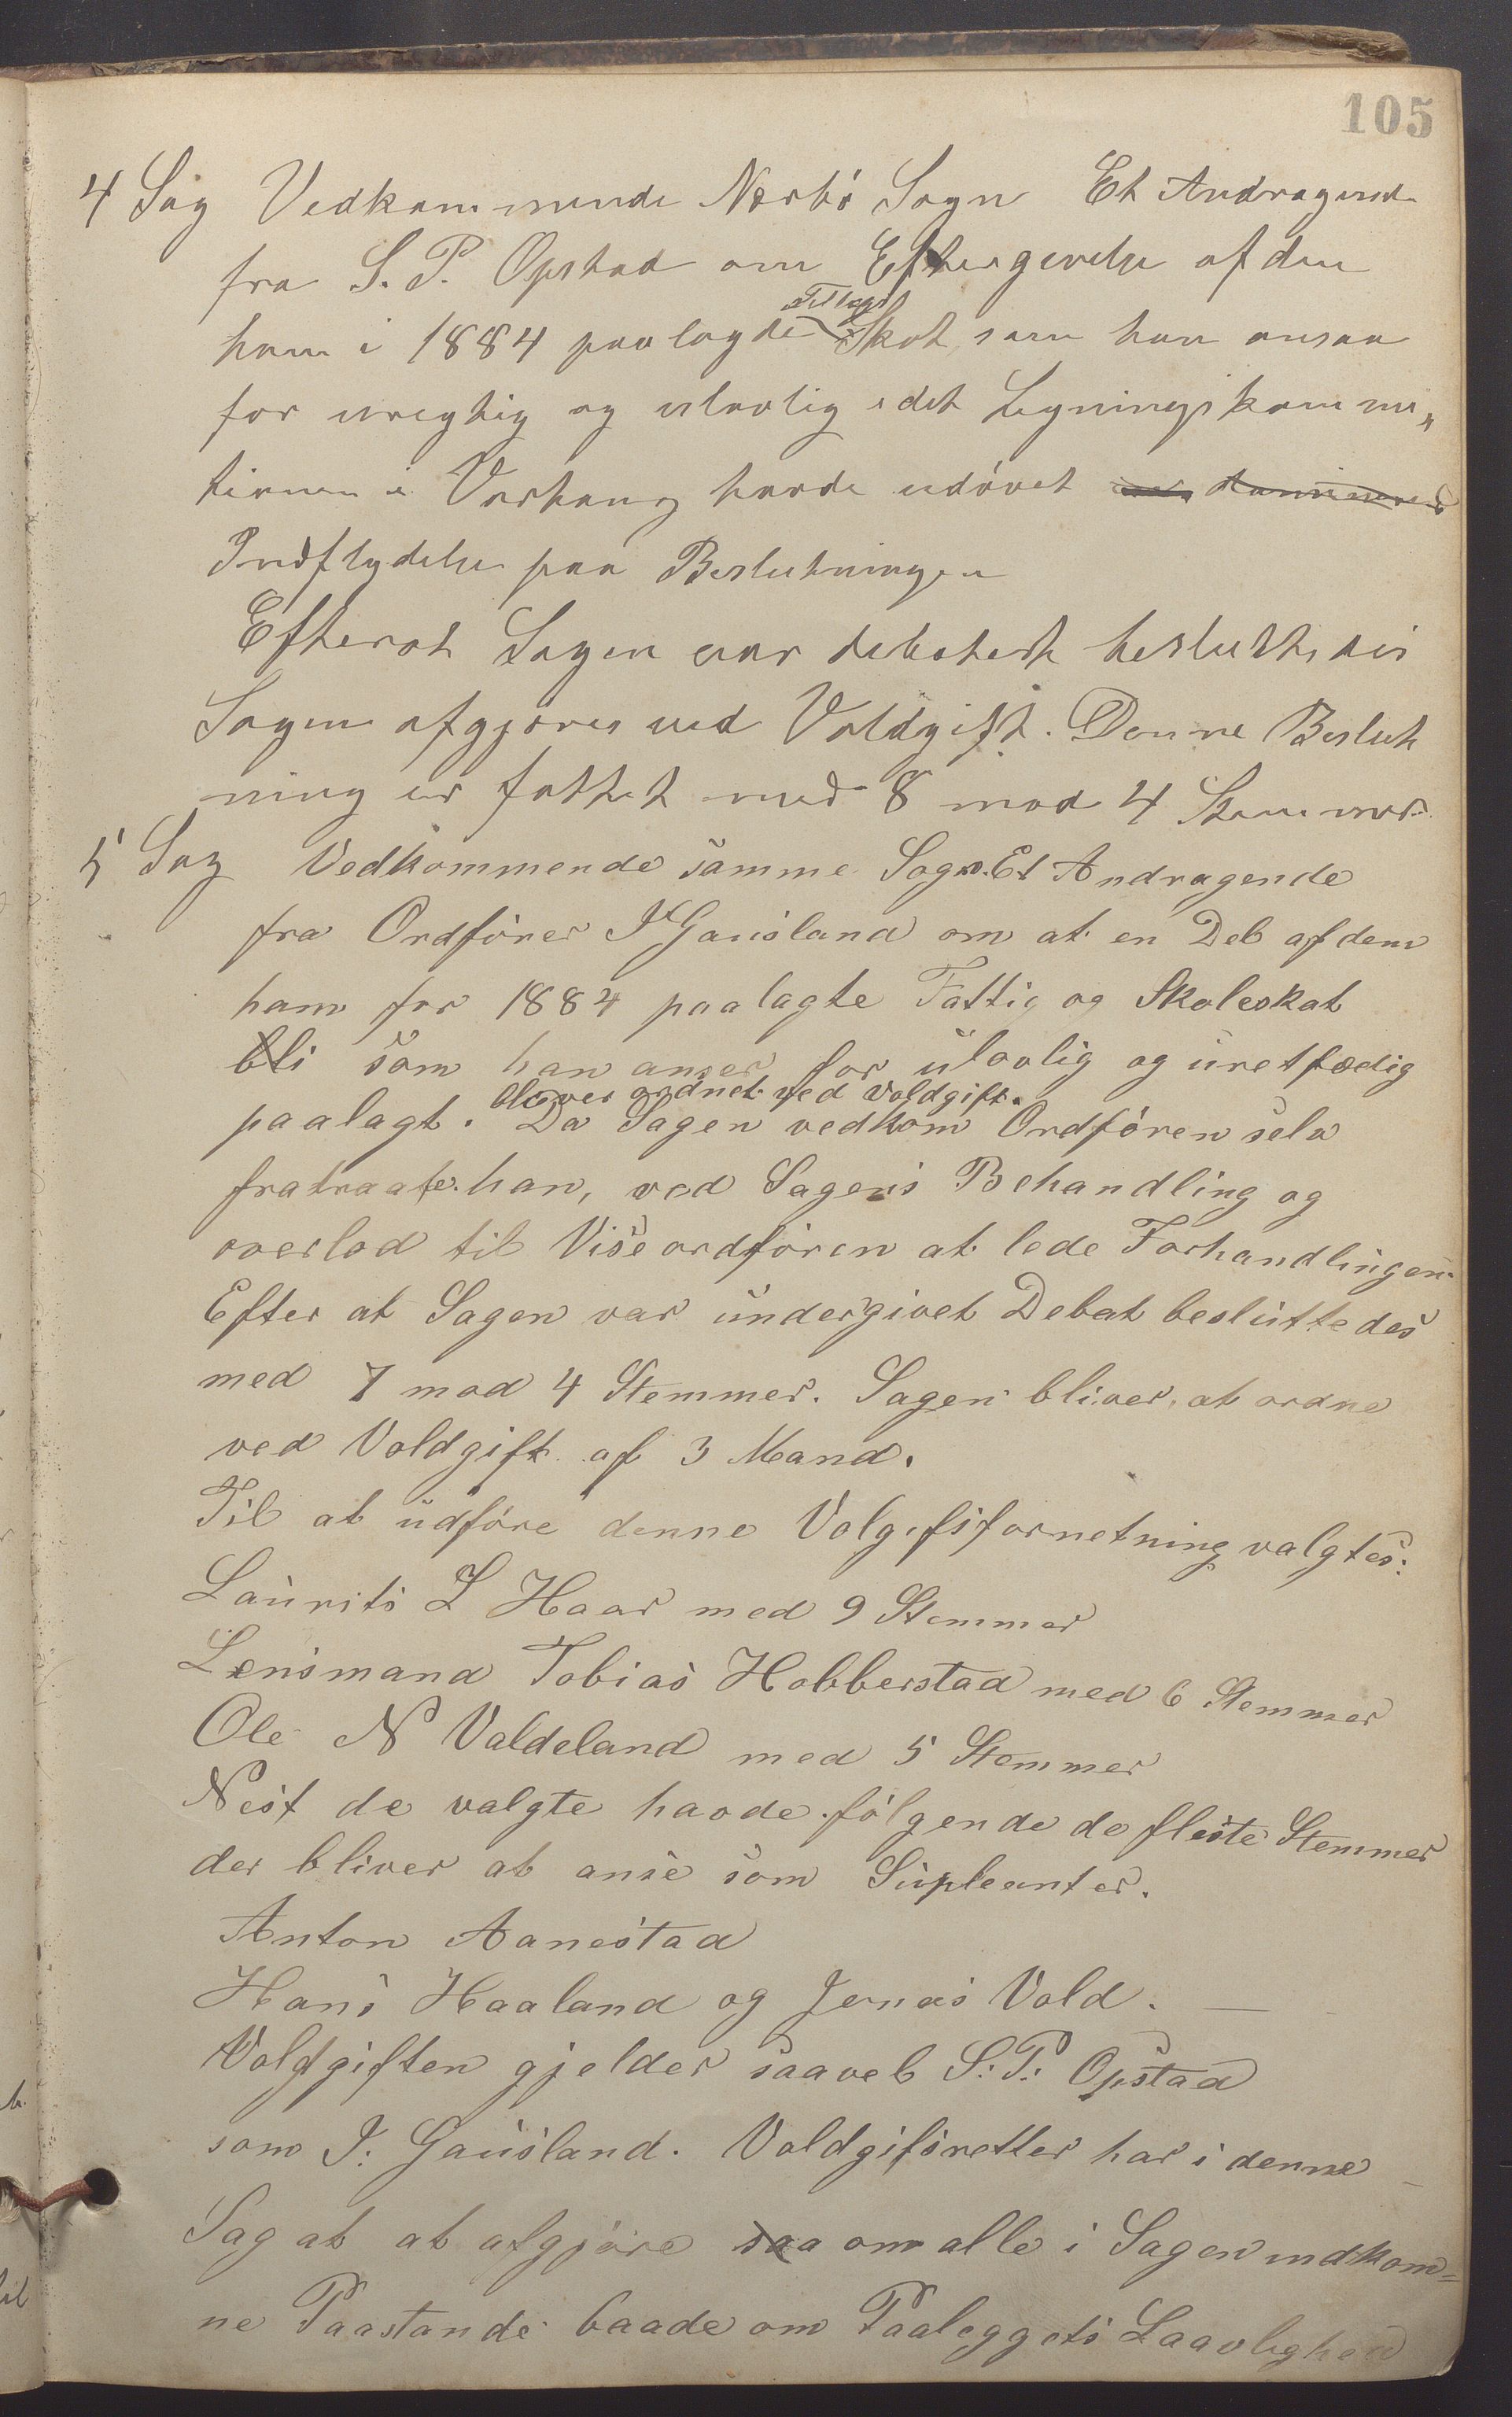 105
4 Sag Vedkommende Nærbö Sogn Et Andragende
fra S. P. Opstad om Eftergivelse af den
ham i 1884 paalagde Tillægs Skat som han ansaa
for uregtig og ulovlig idet Ligningskommi„
tienen i Varhaug havde udövet
Indflydelse paa Beslutningen
Efterat Sagen var debatert besluttedes
Sagen afgjöres ved Voldgift. Denne Beslut
ning er fattet med 8 mod 4 Stemmer.
5 Sag Vedkommende samme Sogn. Et Andragende
fra Ordförer J Gausland om at en Del af dem
ham for 1884 paalagte Fattig og Skoleskat
bli som han anser for ulovlig og uretfædig
paalagt. bliver ordnet ved Voldgift. Da Sagen vedkom Ordfören selv
fratraate han, ved Sagens Behandling og
overlod til Viseordfören at lede Forhandlingen.
Efter at Sagen var undergivet Debat besluttedes
med 7 mod 4 Stemmer. Sagen bliver at ordne
ved Voldgift af 3 Mand.
Til at udföre denne Volgifsforretning valgtes:
Laurits L Haar med 9 Stemmer
Lensmand Tobias Hobberstad med 6 Stemmer
Ole N Valdeland med 5 Stemmer
Nest de valgte havde fölgende de fleste Stemmer
der bliver at anse som Supleanter.
Anton Aanestad
Hans Haaland og Jonas Vold. —
Voldgiften gjelder saavel S: P: Opstad
som J: Gausland. Voldgifsretter har i denne
Sag at at afgjöre saa om alle i Sagen indkom=
ne Paastande baade om Paaleggets Laavlighed